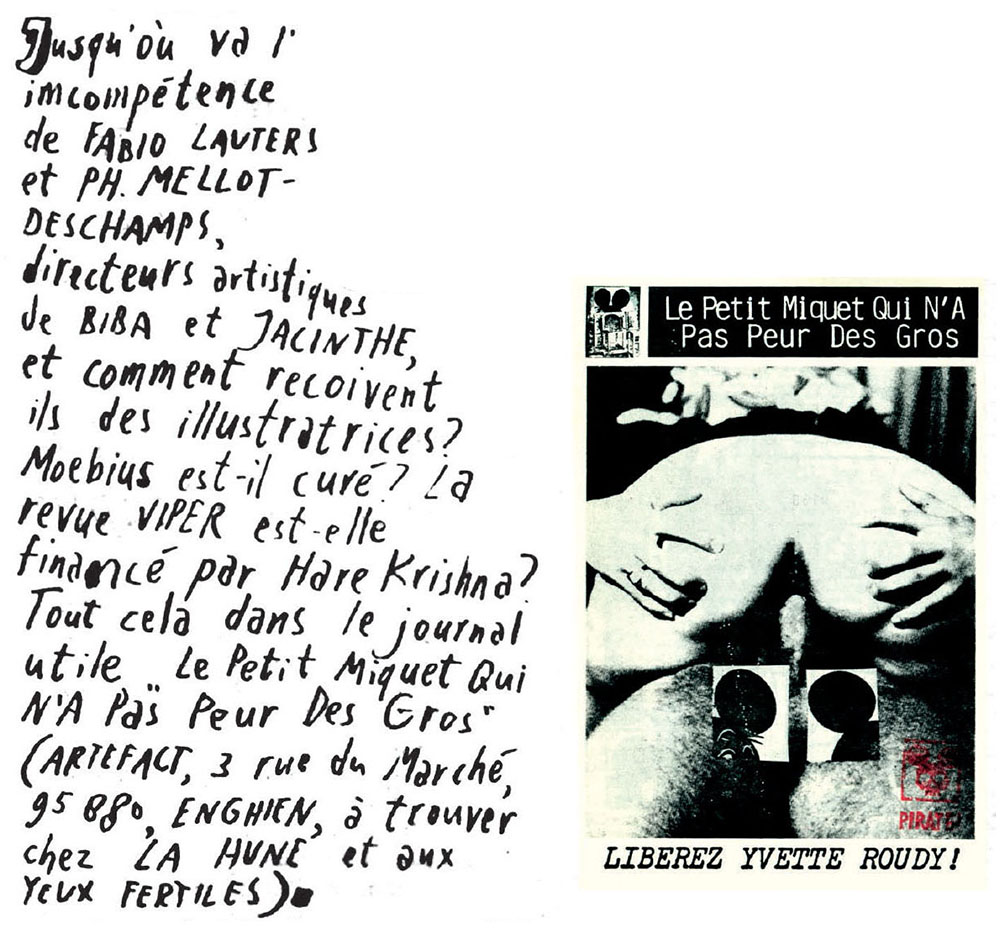 Jusqu'où va l'
imcompétence
de FABIO LAUTERS
et PH. MELLOT-
DESCHAMPS,
directeurs artistiques
de BIBA et JACINTHE,
et comment recoivent
ils des illustratrices?
Moebius est-il curé? La
revue VIPER est-elle
financé par Hare Krishna?
Tout cela dans le journal
utile Le Petit Miquet Qui
N'A Pas Peur Des Gros"
(ARTEFACT, 3 rue du Marché,
95 880, ENGHIEN, à trouver
chez LA HUNE et aux
YEUX FERTILES).
Le Petit Miquet Qui N'A
Pas Peur Des Gros
PIRATE
LIBEREZ YVETTE ROUDY!